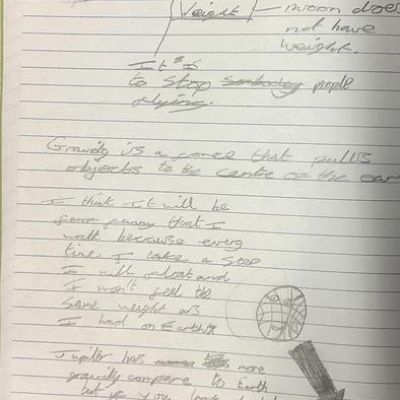 Weight
moon does
not have
weight.
It is
to stop people
dying.
Gravity is a force that pulls
objects to the centre of the ear
I think It will be
funny that I
walk because every
time I take a step
I will float and
I won't feel the
same weight as
I had on Earth
Jupiter has more
gravity compare to Earth
but you